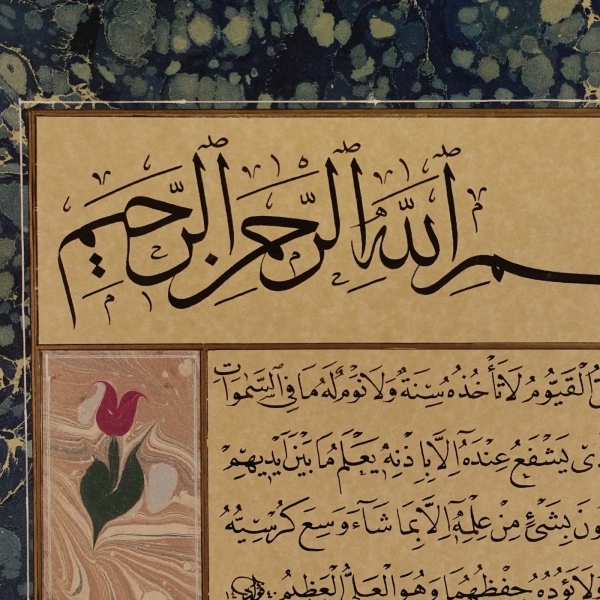 سم الله الرحمن الرحيم
الْقَيُّومُ لَا تَأْخُذُهُ سِنَةٌ وَلَا نَوْمٌ لَهُ مَا فِي السَّمٰوَاتِ
يَشْفَعُ عِنْدَهُ اِلَّا بِاِذْنِهِ يَعْلَمُ مَا بَيْنَ اَيْدِيهِمْ
بِشَىْءٍ مِنْ عِلْمِهِ اِلَّا بِمَا شَاءَ وَسِعَ كُرْسِيُّهُ
وَلَا يَؤُدُهُ حِفْظُهُمَا وَهُوَ الْعَلِىُّ الْعَظِيمُ